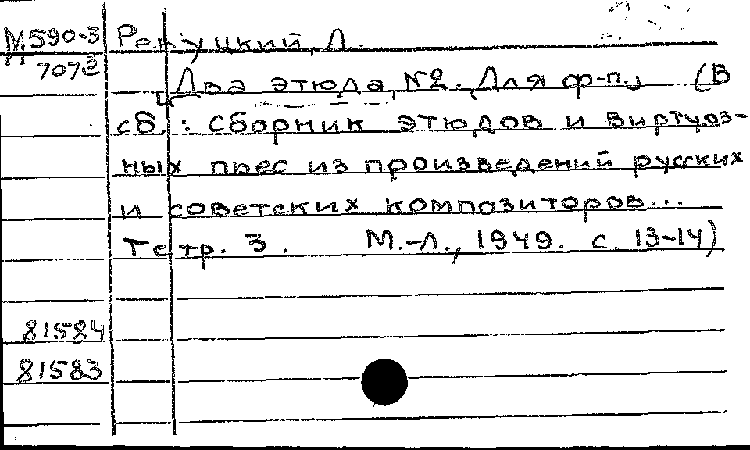 М590-3 Ревуцкий, Л.
7073 [Два этюда, №2. Для ф-п.] (В
сб.: Сборник этюдов и виртуоз-
ных пьес из произведений русских
и советских композиторов...
Тетр. 3. М.-Л., 1949. с. 13-14)
81584
81583